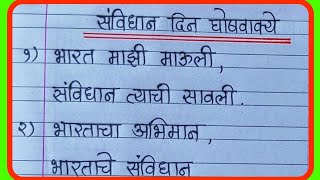 संविधान दिन घोषवाक्ये
१) भारत माझी माऊली,
संविधान त्याची सावली.
२) भारताचा अभिमान,
भारताचे संविधान